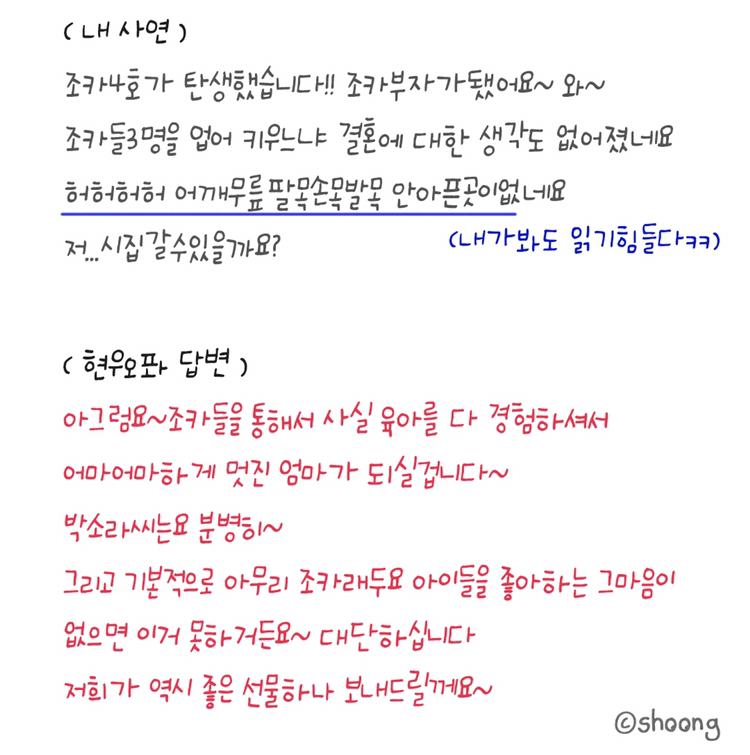 (내 사연)
조카4호가 탄생했습니다!! 조카부자가됐어요~ 와~
조카들3명을 업어 키우느냐 결혼에 대한 생각도 없어졌네요
허허허허 어깨무릎팔목손목발목 안아픈곳이없네요
저...시집갈수있을까요?
(내가봐도 읽기힘들다ㅋㅋ)
(현우오빠 답변)
아그럼요~조카들을 통해서 사실 육아를 다 경험하셔서
어마어마하게 멋진 엄마가 되실겁니다~
박소라씨는요 분병히~
그리고 기본적으로 아무리 조카래두요 아이들을 좋아하는 그마음이
없으면 이거 못하거든요~ 대단하십니다
저희가 역시 좋은 선물하나 보내드릴께요~
©shoong